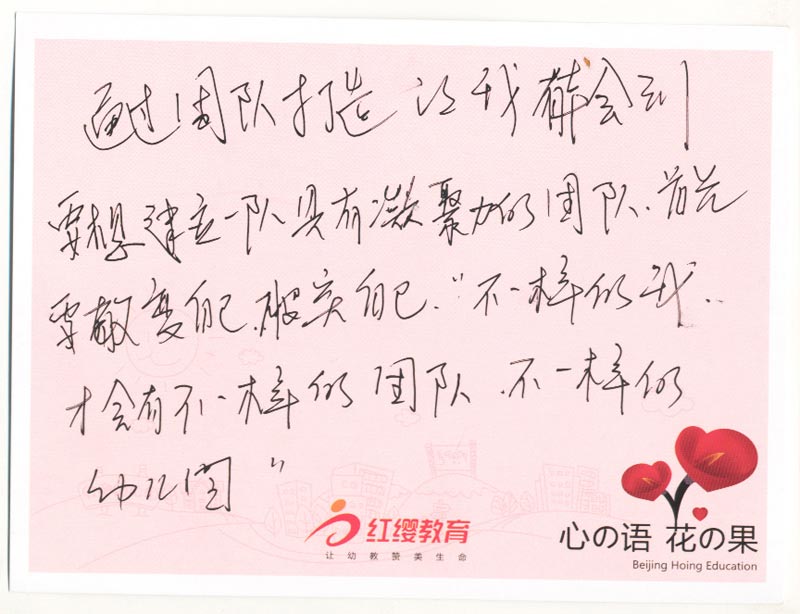 通过团队打造让我体会到
要想建立一队具有凝聚力的团队.首先
要敢变自己.服实自己.“不一样的我..
才会有不一样的团队.不一样的
幼儿园”
红缨教育
让幼教赞美生命
心の语 花の果
Beijing Hoing Education